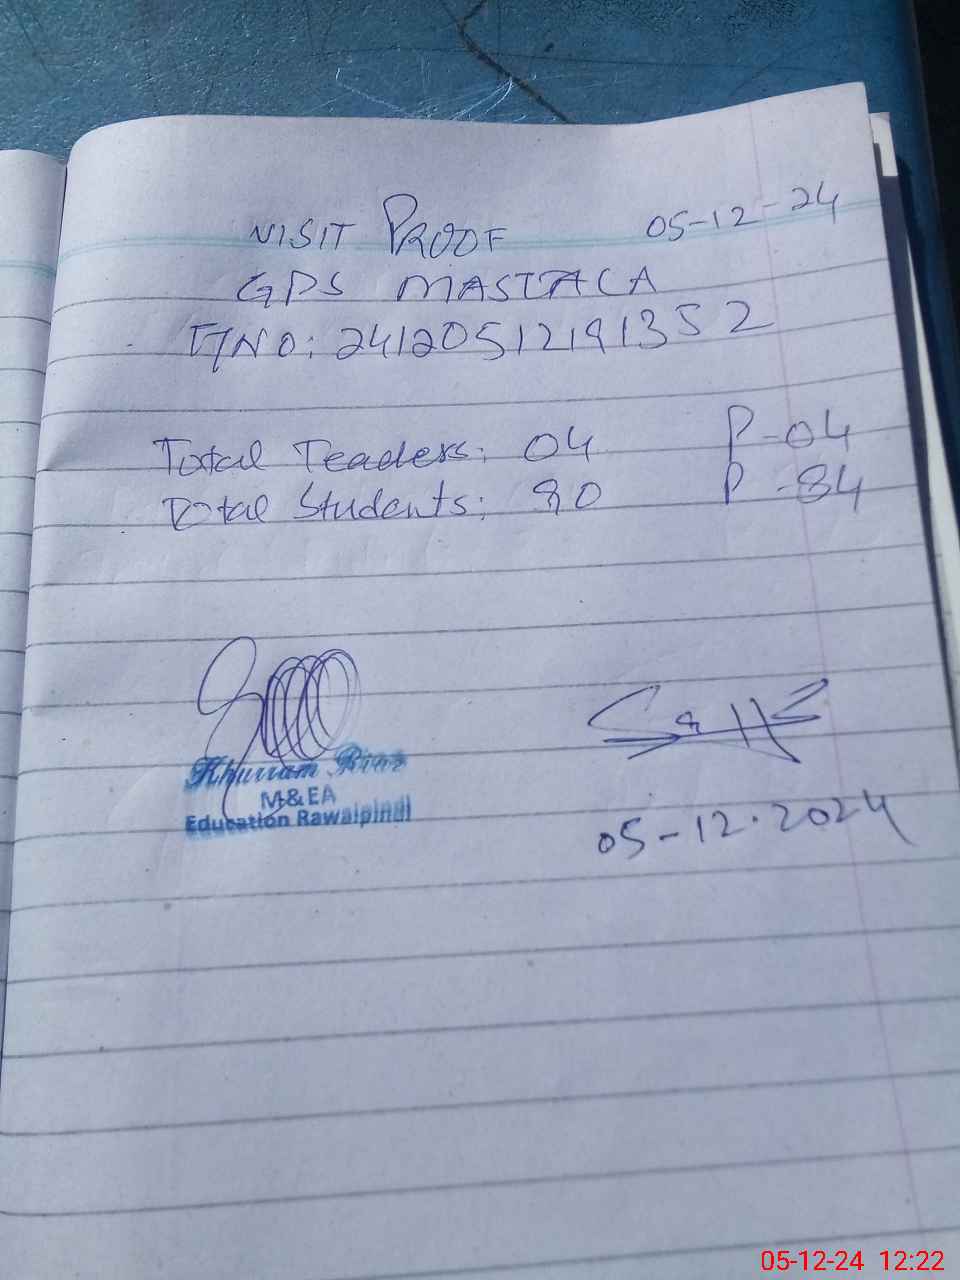 VISIT PROOF 05-12-24
GPS MASTALA
F/NO: 24120512191352
Total Teachers: 04 P-04
Total Students: 90 P-84
Khurram Riaz
M&EA
Education Rawalpindi
05-12-2024
05-12-24 12:22